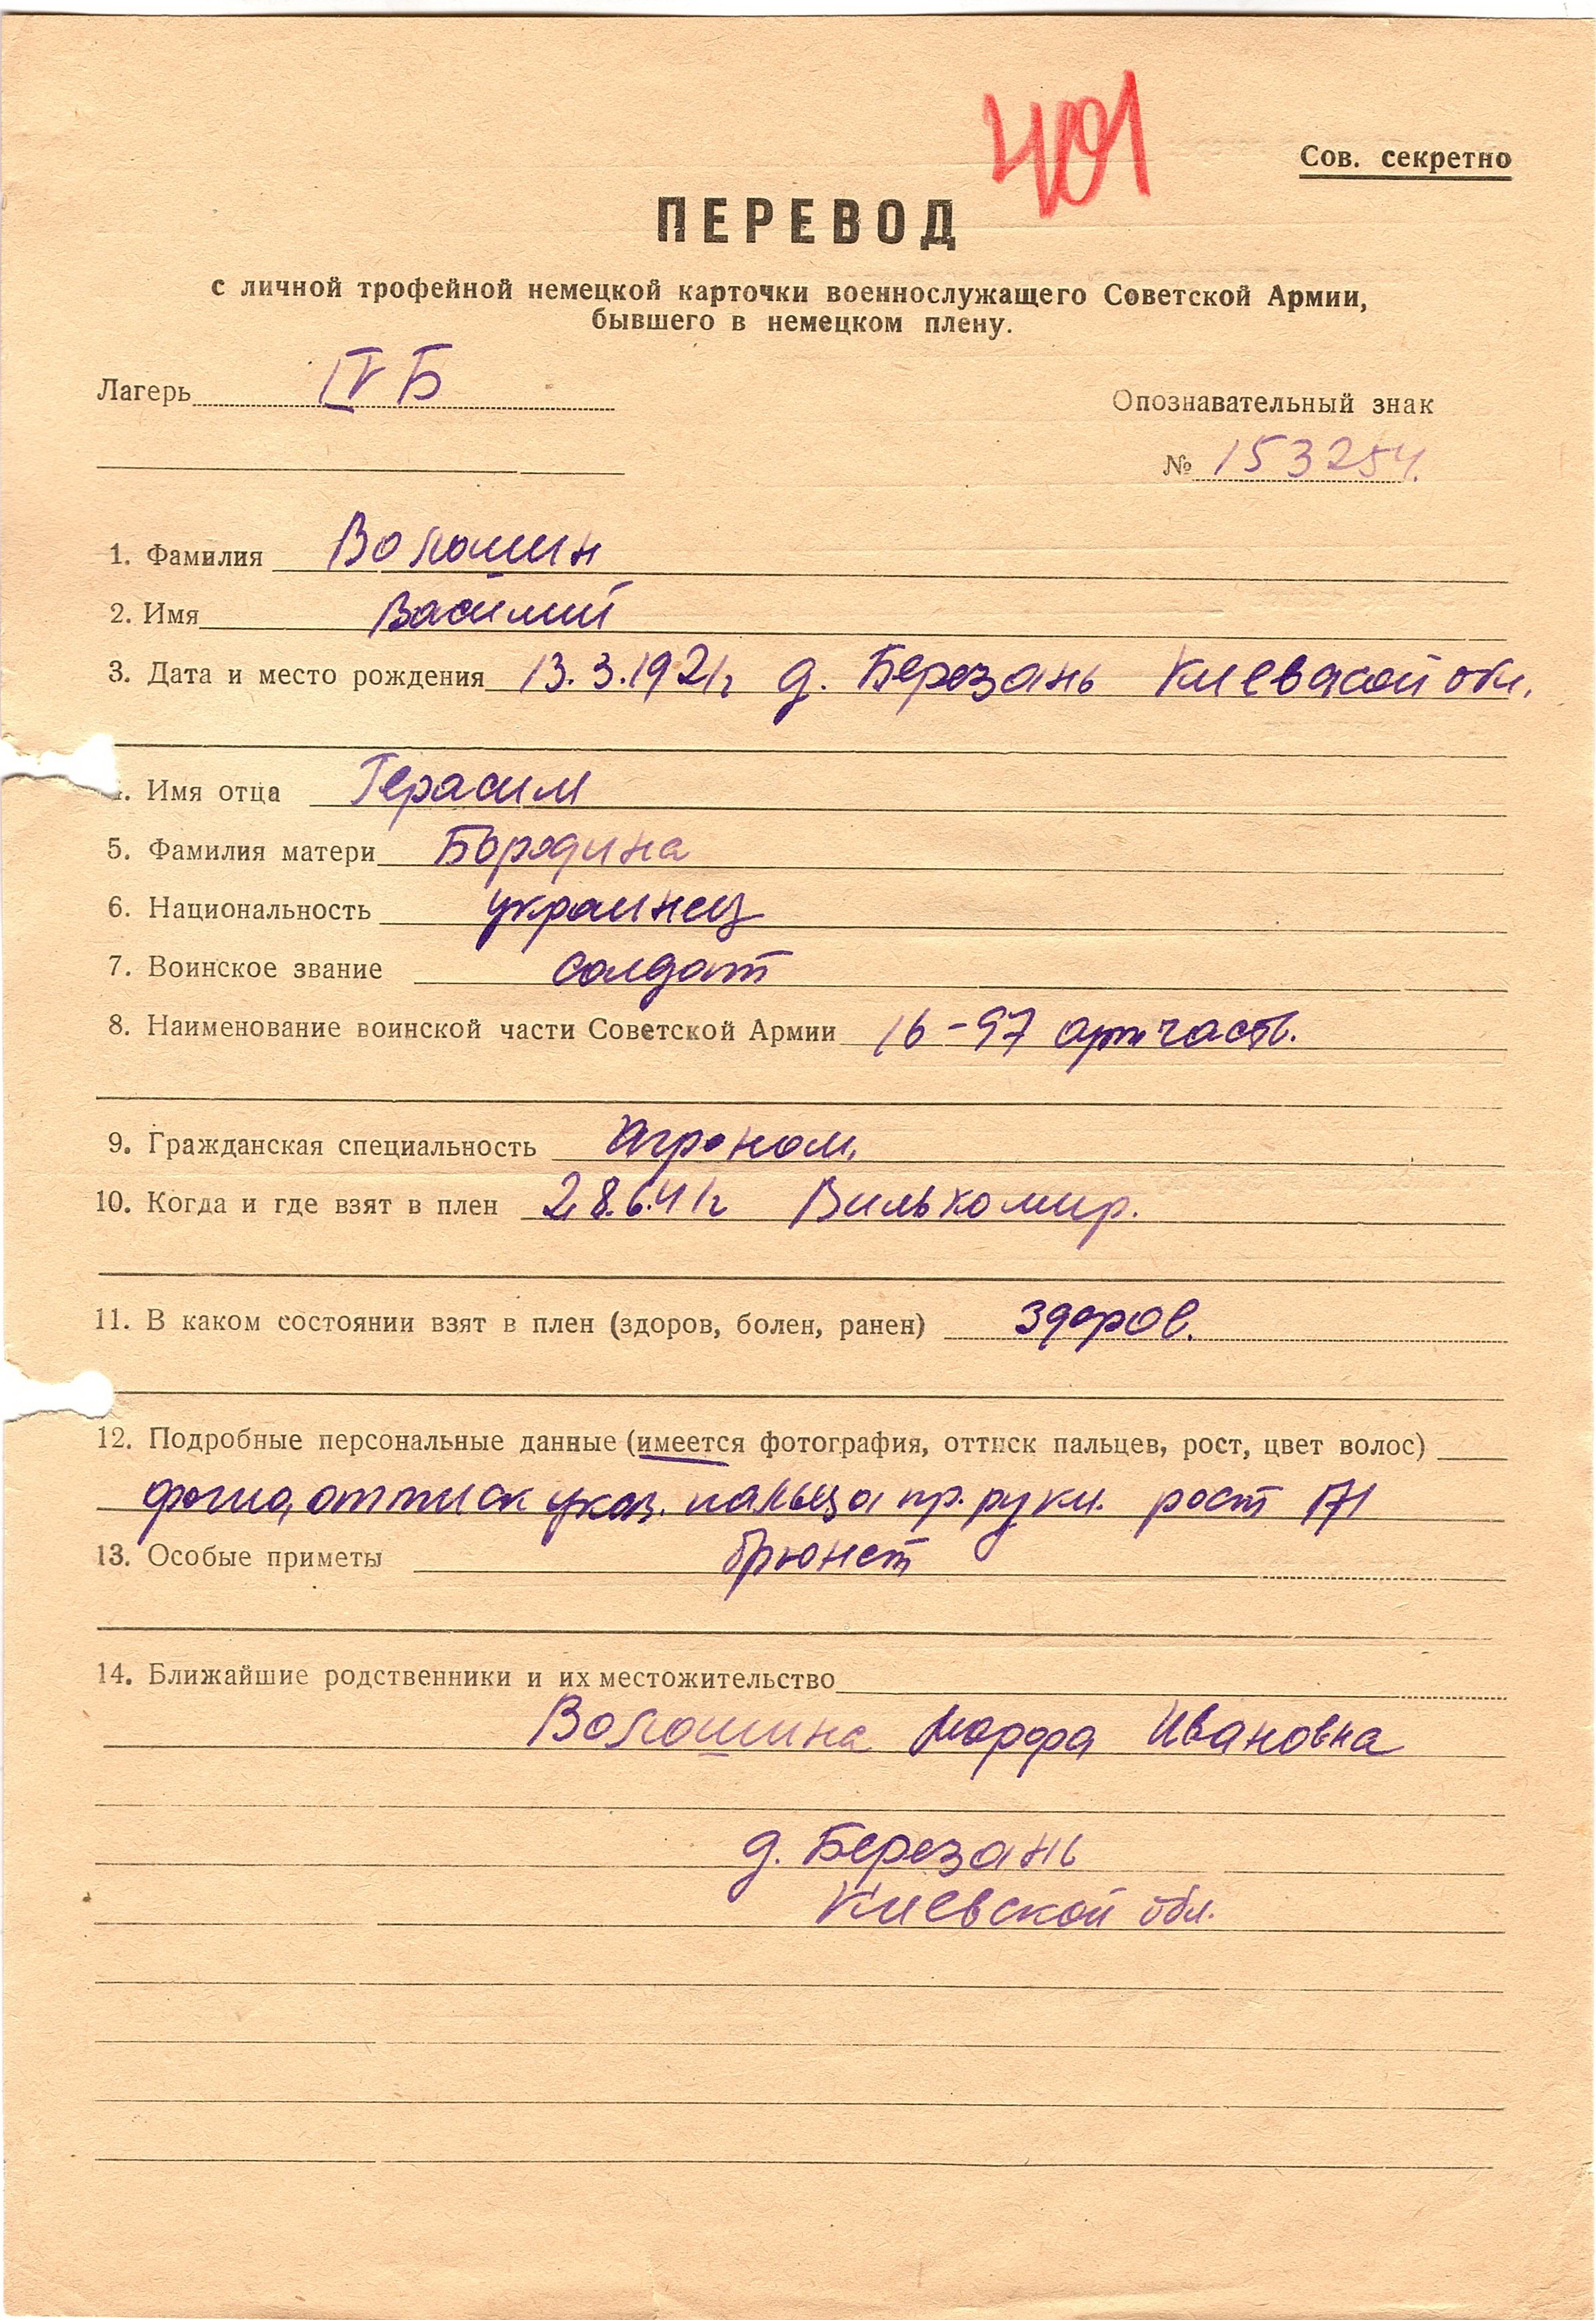 401
Сов. секретно
ПЕРЕВОД
с личной трофейной немецкой карточки военнослужащего Советской Армии,
бывшего в немецком плену.
Лагерь IV Б
Опознавательный знак
№ 153254.
1. Фамилия Волошин
2. Имя Василий
3. Дата и место рождения 13.3.1921г д. Березань Киевской обл.
4. Имя отца Герасим
5. Фамилия матери Бородина
6. Национальность украинец
7. Воинское звание солдат
8. Наименование воинской части Советской Армии 16-97 арт часть.
9. Гражданская специальность Агроном.
10. Когда и где взят в плен 28.6.41г Вилькомир.
11. В каком состоянии взят в плен (здоров, болен, ранен) здоров.
12. Подробные персональные данные (имеется фотография, оттиск пальцев, рост, цвет волос)
фото, оттиск указ. пальца пр. руки. рост 171
13. Особые приметы брюнет
14. Ближайшие родственники и их местожительство
Волошина Марфа Ивановна
д. Березань
Киевской обл.